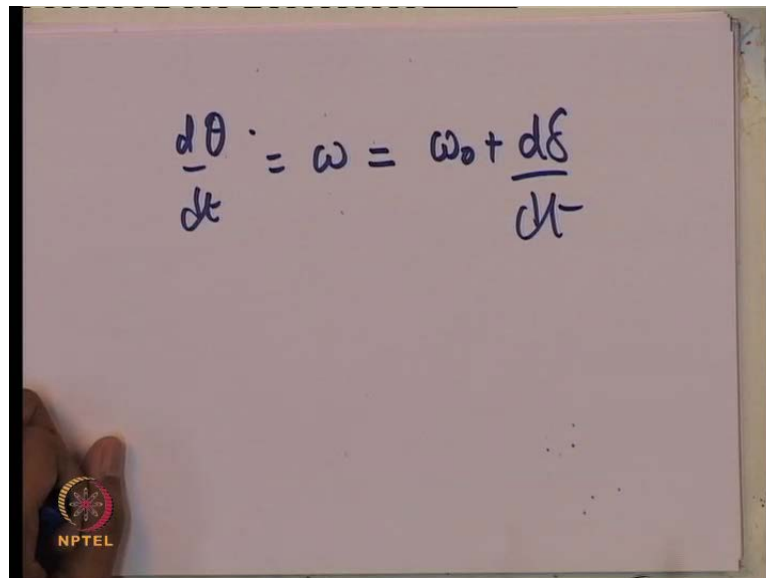 dθ/dt = ω = ω₀ + dδ/dt
NPTEL